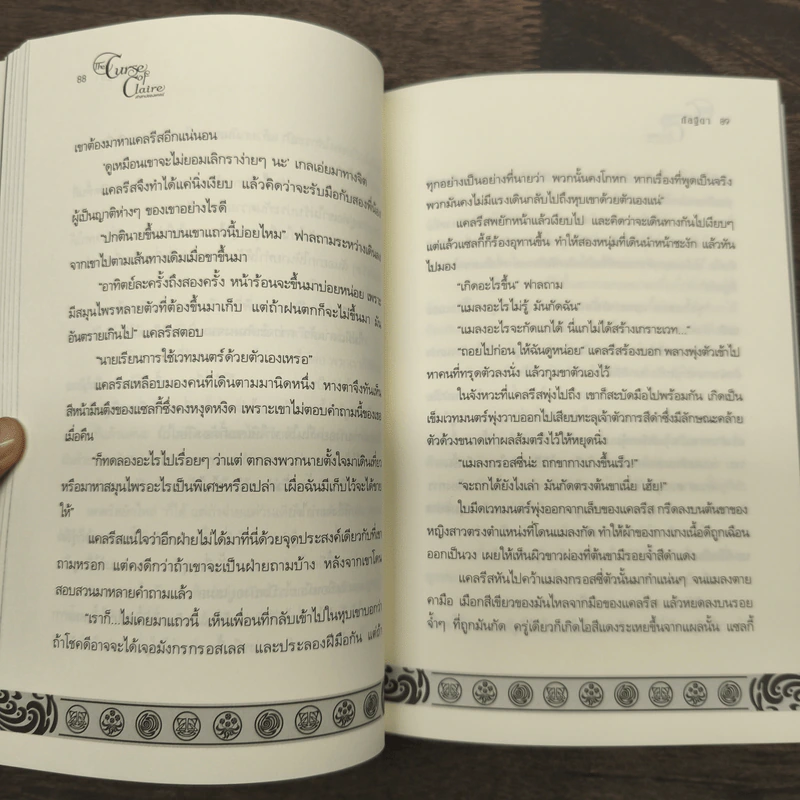 88
The Curse of Claire
เขาต้องมาหาแคลรีสอีกแน่นอน
'ดูเหมือนเขาจะไม่ยอมเลิกราง่ายๆ นะ' เกลเอ่ยมาทางจิต
แคลรีสจึงทำได้แค่นิ่งเงียบ แล้วคิดว่าจะรับมือกับสองพี่น้อง
ผู้เป็นญาติห่างๆ ของเขาอย่างไรดี
"ปกตินายขึ้นมาบนเขาแถวนี้บ่อยไหม" ฟาลถามระหว่างเดินลง
จากเขาไปตามเส้นทางเดิมเมื่อขาขึ้นมา
"อาทิตย์ละครั้งถึงสองครั้ง หน้าร้อนจะขึ้นมาบ่อยหน่อย เพราะ
มีสมุนไพรหลายตัวที่ต้องขึ้นมาเก็บ แต่ถ้าฝนตกก็จะไม่ขึ้นมา มัน
อันตรายเกินไป" แคลรีสตอบ
"นายเรียนการใช้เวทมนตร์ด้วยตัวเองเหรอ"
แคลรีสเหลือบมองคนที่เดินตามมานิดหนึ่ง หางตาจึงทันเห็น
สีหน้ามึนตึงของแซลกี้ซึ่งคงหงุดหงิด เพราะเขาไม่ตอบคำถามนี้ของเธอ
เมื่อคืน
"ก็ทดลองอะไรไปเรื่อยๆ ว่าแต่ ตกลงพวกนายตั้งใจมาเดินเที่ยว
หรือมาหาสมุนไพรอะไรเป็นพิเศษหรือเปล่า เผื่อฉันมีเก็บไว้จะได้ขาย
ให้"
แคลรีสแน่ใจว่าอีกฝ่ายไม่ได้มาที่นี่ด้วยจุดประสงค์เดียวกับที่เขา
ถามหรอก แต่คงดีกว่าถ้าเขาจะเป็นฝ่ายถามบ้าง หลังจากเขาโดน
สอบสวนมาหลายคำถามแล้ว
"เราก็...ไม่เคยมาแถวนี้ เห็นเพื่อนที่กลับเข้าไปในหุบเขาบอกว่า
ถ้าโชคดีอาจจะได้เจอมังกรกรอสเลส และประลองฝีมือกัน แต่ถ้า
กัลฐิดา 89
ทุกอย่างเป็นอย่างที่นายว่า พวกนั้นคงโกหก หากเรื่องที่พูดเป็นจริง
พวกมันคงไม่มีแรงเดินกลับไปถึงหุบเขาด้วยตัวเองแน่"
แคลรีสพยักหน้าแล้วเงียบไป และคิดว่าจะเดินทางกันไปเงียบๆ
แต่แล้วแซลกี้ก็ร้องอุทานขึ้น ทำให้สองหนุ่มที่เดินนำหน้าชะงัก แล้วหัน
ไปมอง
"เกิดอะไรขึ้น" ฟาลถาม
"แมลงอะไรไม่รู้ มันกัดฉัน"
"แมลงอะไรจะกัดแกได้ นี่แกไม่ได้สร้างเกราะเวท..."
"ถอยไปก่อน ให้ฉันดูหน่อย" แคลรีสร้องบอก พลางพุ่งตัวเข้าไป
หาคนที่ทรุดตัวลงนั่ง แล้วกุมขาตัวเองไว้
ในจังหวะที่แคลรีสพุ่งไปถึง เขาก็สะบัดมือไปพร้อมกัน เกิดเป็น
เข็มเวทมนตร์พุ่งวาบออกไปเสียบทะลุเจ้าตัวการสีดำซึ่งมีลักษณะคล้าย
ตัวด้วงขนาดเท่าผลส้มตรึงไว้ให้หยุดนิ่ง
"แมลงกรอสซี่น่ะ ถกขากางเกงขึ้นเร็ว!"
"จะถกได้ยังไงเล่า มันกัดตรงต้นขาเนี่ย เฮ้ย!"
ใบมีดเวทมนตร์พุ่งออกจากเล็บของแคลรีส กรีดลงบนต้นขาของ
หญิงสาวตรงตำแหน่งที่โดนแมลงกัด ทำให้ผ้าของกางเกงเนื้อดีถูกเฉือน
ออกเป็นวง เผยให้เห็นผิวขาวผ่องที่ต้นขามีรอยจ้ำสีดำแดง
แคลรีสหันไปคว้าแมลงกรอสซี่ตัวนั้นมากำแน่นๆ จนแมลงตาย
คามือ เมือกสีเขียวของมันไหลจากมือของแคลรีส แล้วหยดลงบนรอย
จ้ำๆ ที่ถูกมันกัด ครู่เดียวก็เกิดไอสีแดงระเหยขึ้นจากแผลนั้น แซลกี้